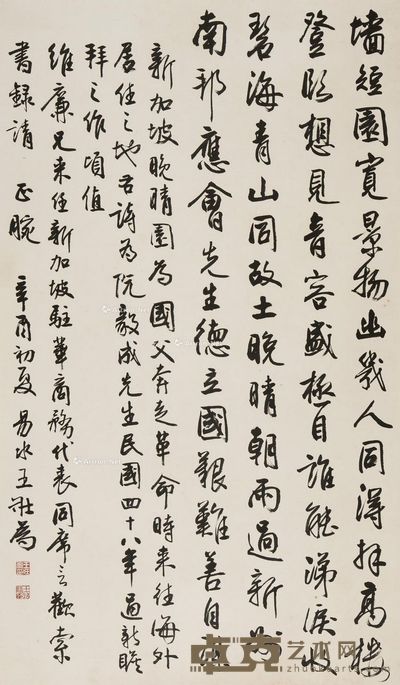 墙短園寬景物幽幾人同得拜高樓
登臨想見音容盛極目誰能涕淚收
碧海青山同故土晚晴朝雨過新
南邦應會先生德立國艱難善自
新加坡晚晴園為國父奔走革命時来往海外
居住之地右詩為阮毅成先生民國四十八年過新瞻
拜之作頃值
維廉兄来任新加坡駐華商務代表同席言歡索
書録請 正腕 辛酉初夏 易水王壯為
艺术网